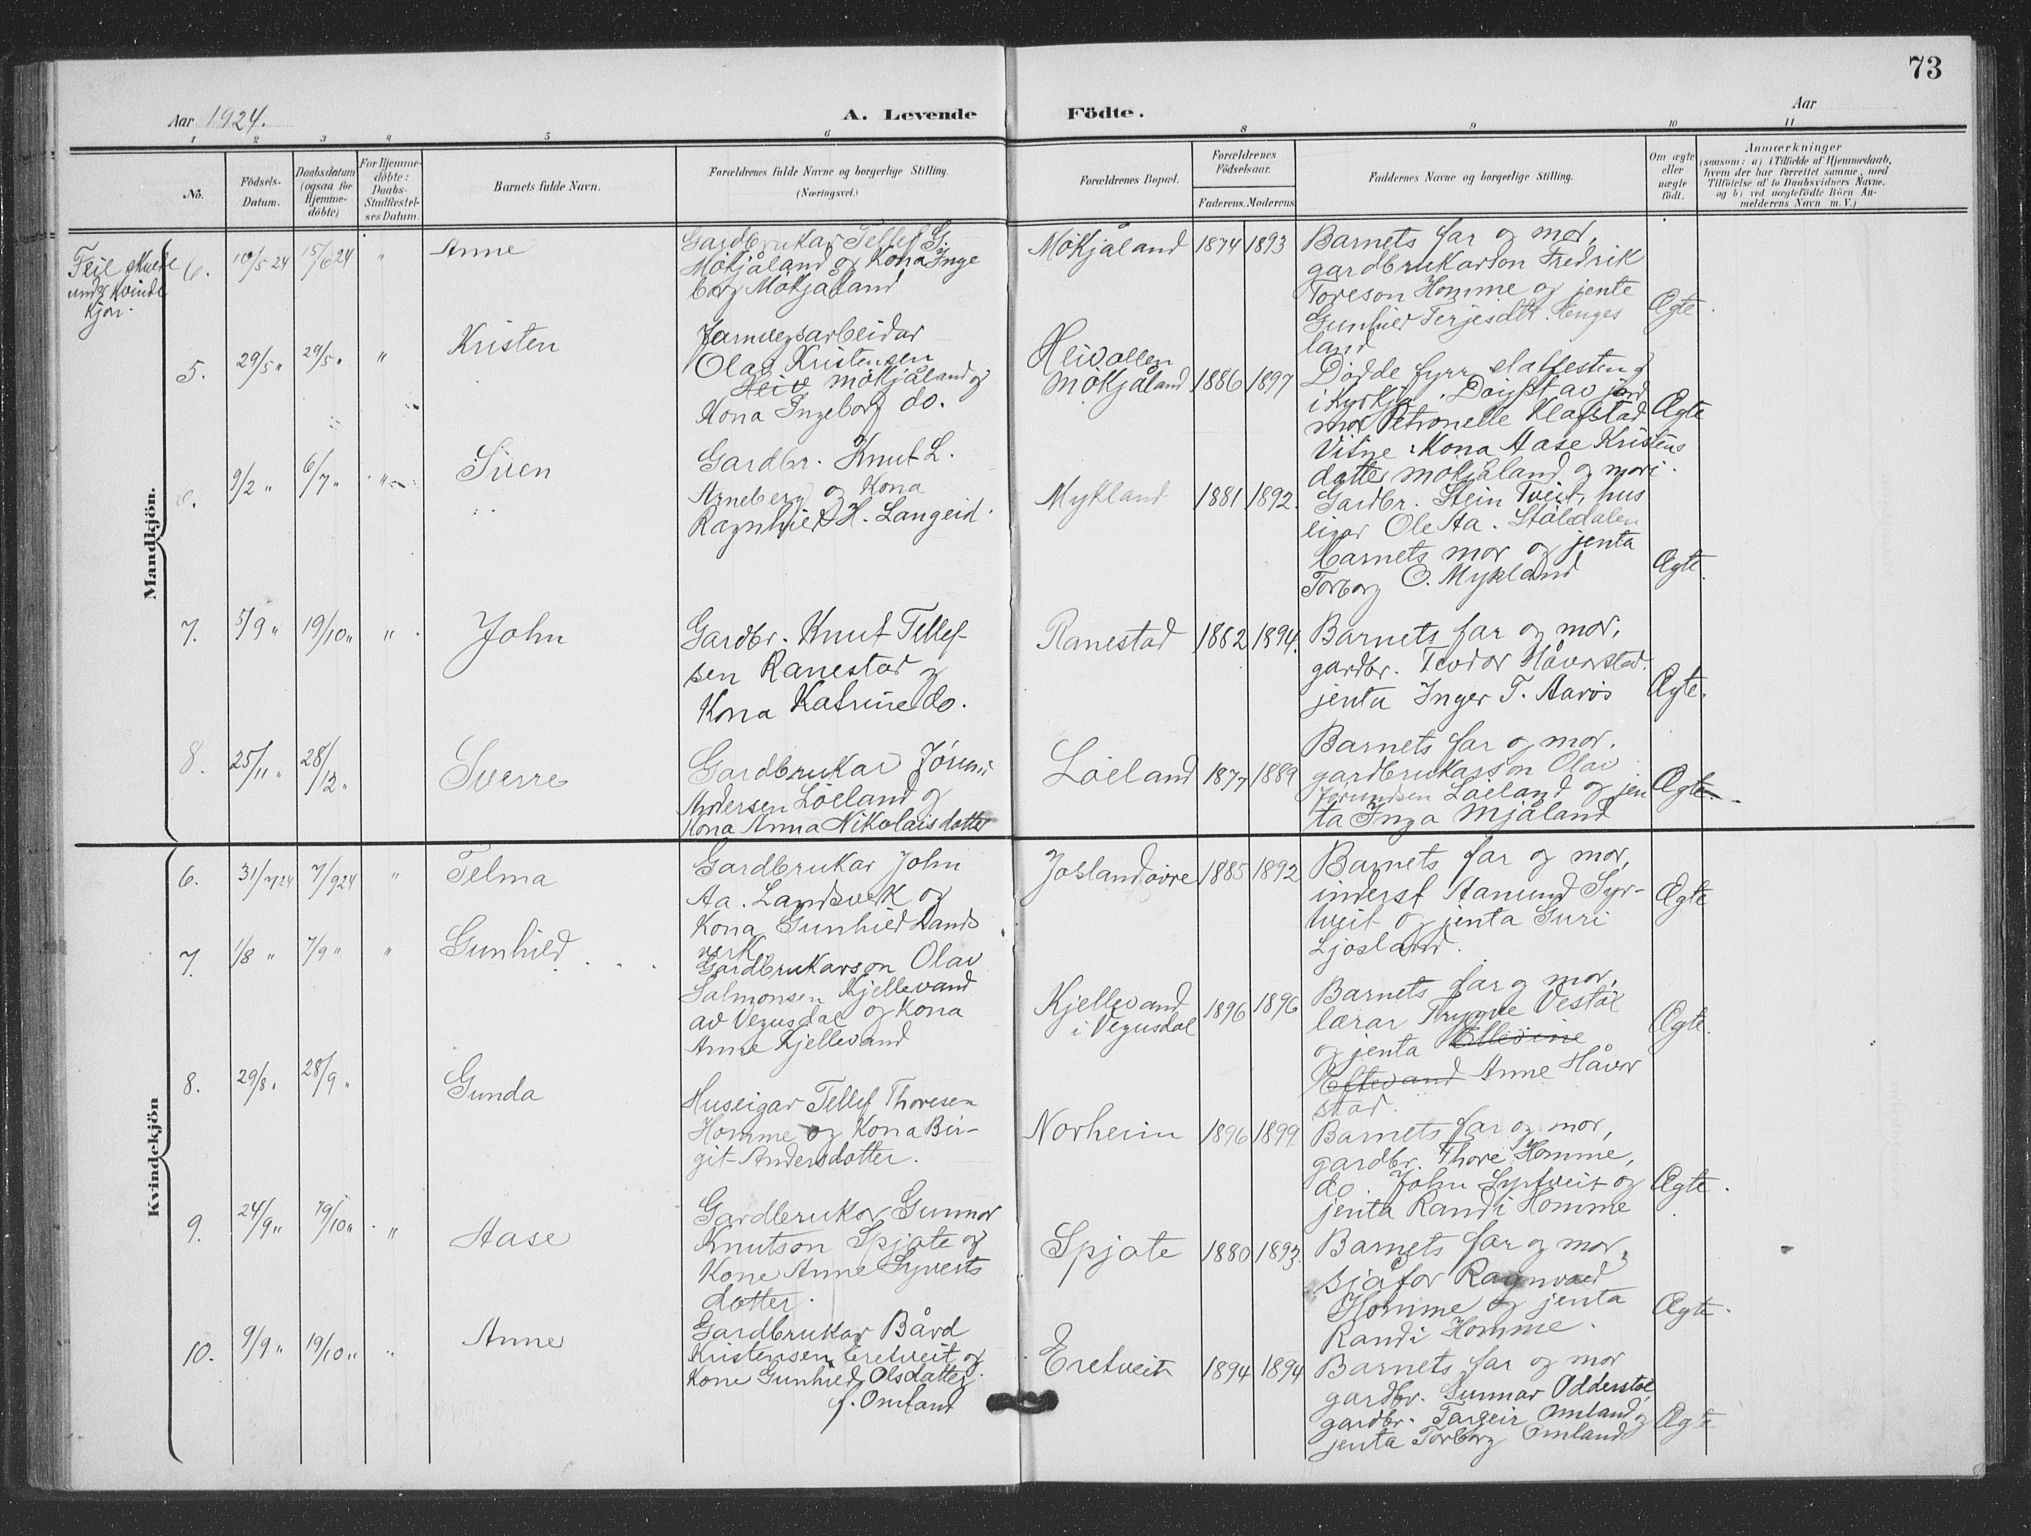 73
Aar 1924.
A. Levende
Födte.
Aar
1 2 3 4 5 6 8 9 10 11
No.
Födsels-
Datum.
Daabsdatum
(ogsaa for
Hjemme-
döbte)
For Hjemme-
döbte:
Daabs-
Stadfestel-
ses Datum.
Barnets fulde Navn.
Forældrenes fulde Navne og borgerlige Stilling.
(Næringsvei.)
Forældrenes Bopæl.
Forældrenes
Födselsaar.
Faderens. Moderens
Faddernes Navne og borgerlige Stilling.
Om ægte
eller
uægte
födt.
Anmærkninger
(saasom: a) i Tilfælde af Hjemmedaab,
hvem der har forrettet samme, med
Tilföielse af to Daabsvidners Navne.
og b) ved uægtefödte Börn An-
melderens Navn m. V.)
Mandkjön.
Feil skulde
under kvinde
kjön.
6. 10/5 24 15/6 24 " Anne
Gardbrukar Tellef G.
Mökjåland og Kona Inge
borg Mökjåland
Mökjåland 1874 1893
Barnets far og mor,
gardbrukarson Fredrik
Toreson Homme og jente
Gunhild Terjesdtr. Heges
land
Ægte.
5. 29/5 " 29/5 " " Kristen
Jarnvegsarbeidar
Olav Kristensen
Heiv Mökjåland og
Kona Ingeborg do.
Heivollen
Mökjåland 1886 1897
Dödde fyrr stadfesting
i kyrkja. Döypt av jord
mor Petronelle Klafstad
Vitne: Kona Aase Kristens
datter Mökjåland og mori.
Ægte
6. 9/2 " 6/7 " " Sven
Gardbr. Knut L.
Arneberg og Kona
Ragnhild H. Langeid.
Mykland 1881 1892.
Gardbr. Stein Tveit, hus
eigar Ole Aa. Stöledalen
barnets mor og jenta
Torborg O. Mykland
Ægte.
7. 5/9 " 19/10 " " John
Gardbr. Knut Tellef-
sen Ranestad og
Kona Katrine do.
Ranestad 1882 1894.
Barnets far og mor,
gardbr. Teodor Håvorstad.
jenta Inger T. Aarös
Ægte.
8. 25/11 " 28/12 " Sverre
Gardbrukar Jörun
Andersen Löeland og
Kona Anna Nikolaisdatter
Löeland 1877 1889
Barnets far og mor.
gardbrukarson Olav
Jörundsen Löeland og jen
ta Inga Mjåland
Ægte.
Kvindekjön
6. 31/7 24 7/9 24 " Telma
Gardbrukar John
Aa. Landsverk og
Kona Gunhild Lands
verk
Josland övre 1885 1892
Barnets far og mor,
inderst Aanund Syr-
tveit og jenta Guri
Ljosland.
Ægte
7. 1/8 " 7/9 " " Gunhild
Gardbrukarson Olav
Salmonsen Kjellevand
av Vegusdal og Kona
Anne Kjellevand
Kjellevand
i Vegusdal 1896 1896
Barnets far og mor,
lærar Trygve Vestöl
og jenta Ellevine
Eftevand Anne Håvor
stad.
Ægte.
8. 29/8 " 28/9 " Gunda
Huseigar Tellef Thoresen
Homme og Kona Bir-
git Andersdotter.
Norheim 1896 1899
Barnets far og mor,
gardbr. Thore Homme,
do. John Syrtveit og
jenta Randi Homme
Ægte.
9. 24/9 " 19/10 " " Aase
Gardbrukar Gunnar
Knutson Spjote og
Kone Anne Syverts
dotter.
Spjote 1880 1893.
Barnets far og mor,
sjåför Ragnvald
Homme og jenta
Randi Homme.
Ægte.
10. 9/9 " 19/10 " " Anne
Gardbrukar Bård
Kristensen Eretveit og
Kone Gunhild Olsdatter
f. Omland
Eretveit 1894 1894
Barnets far og mor
gardbr. Gunnar Odderstöl,
gardbr. Targeir Omland og
jenta Torborg Omland
Ægte